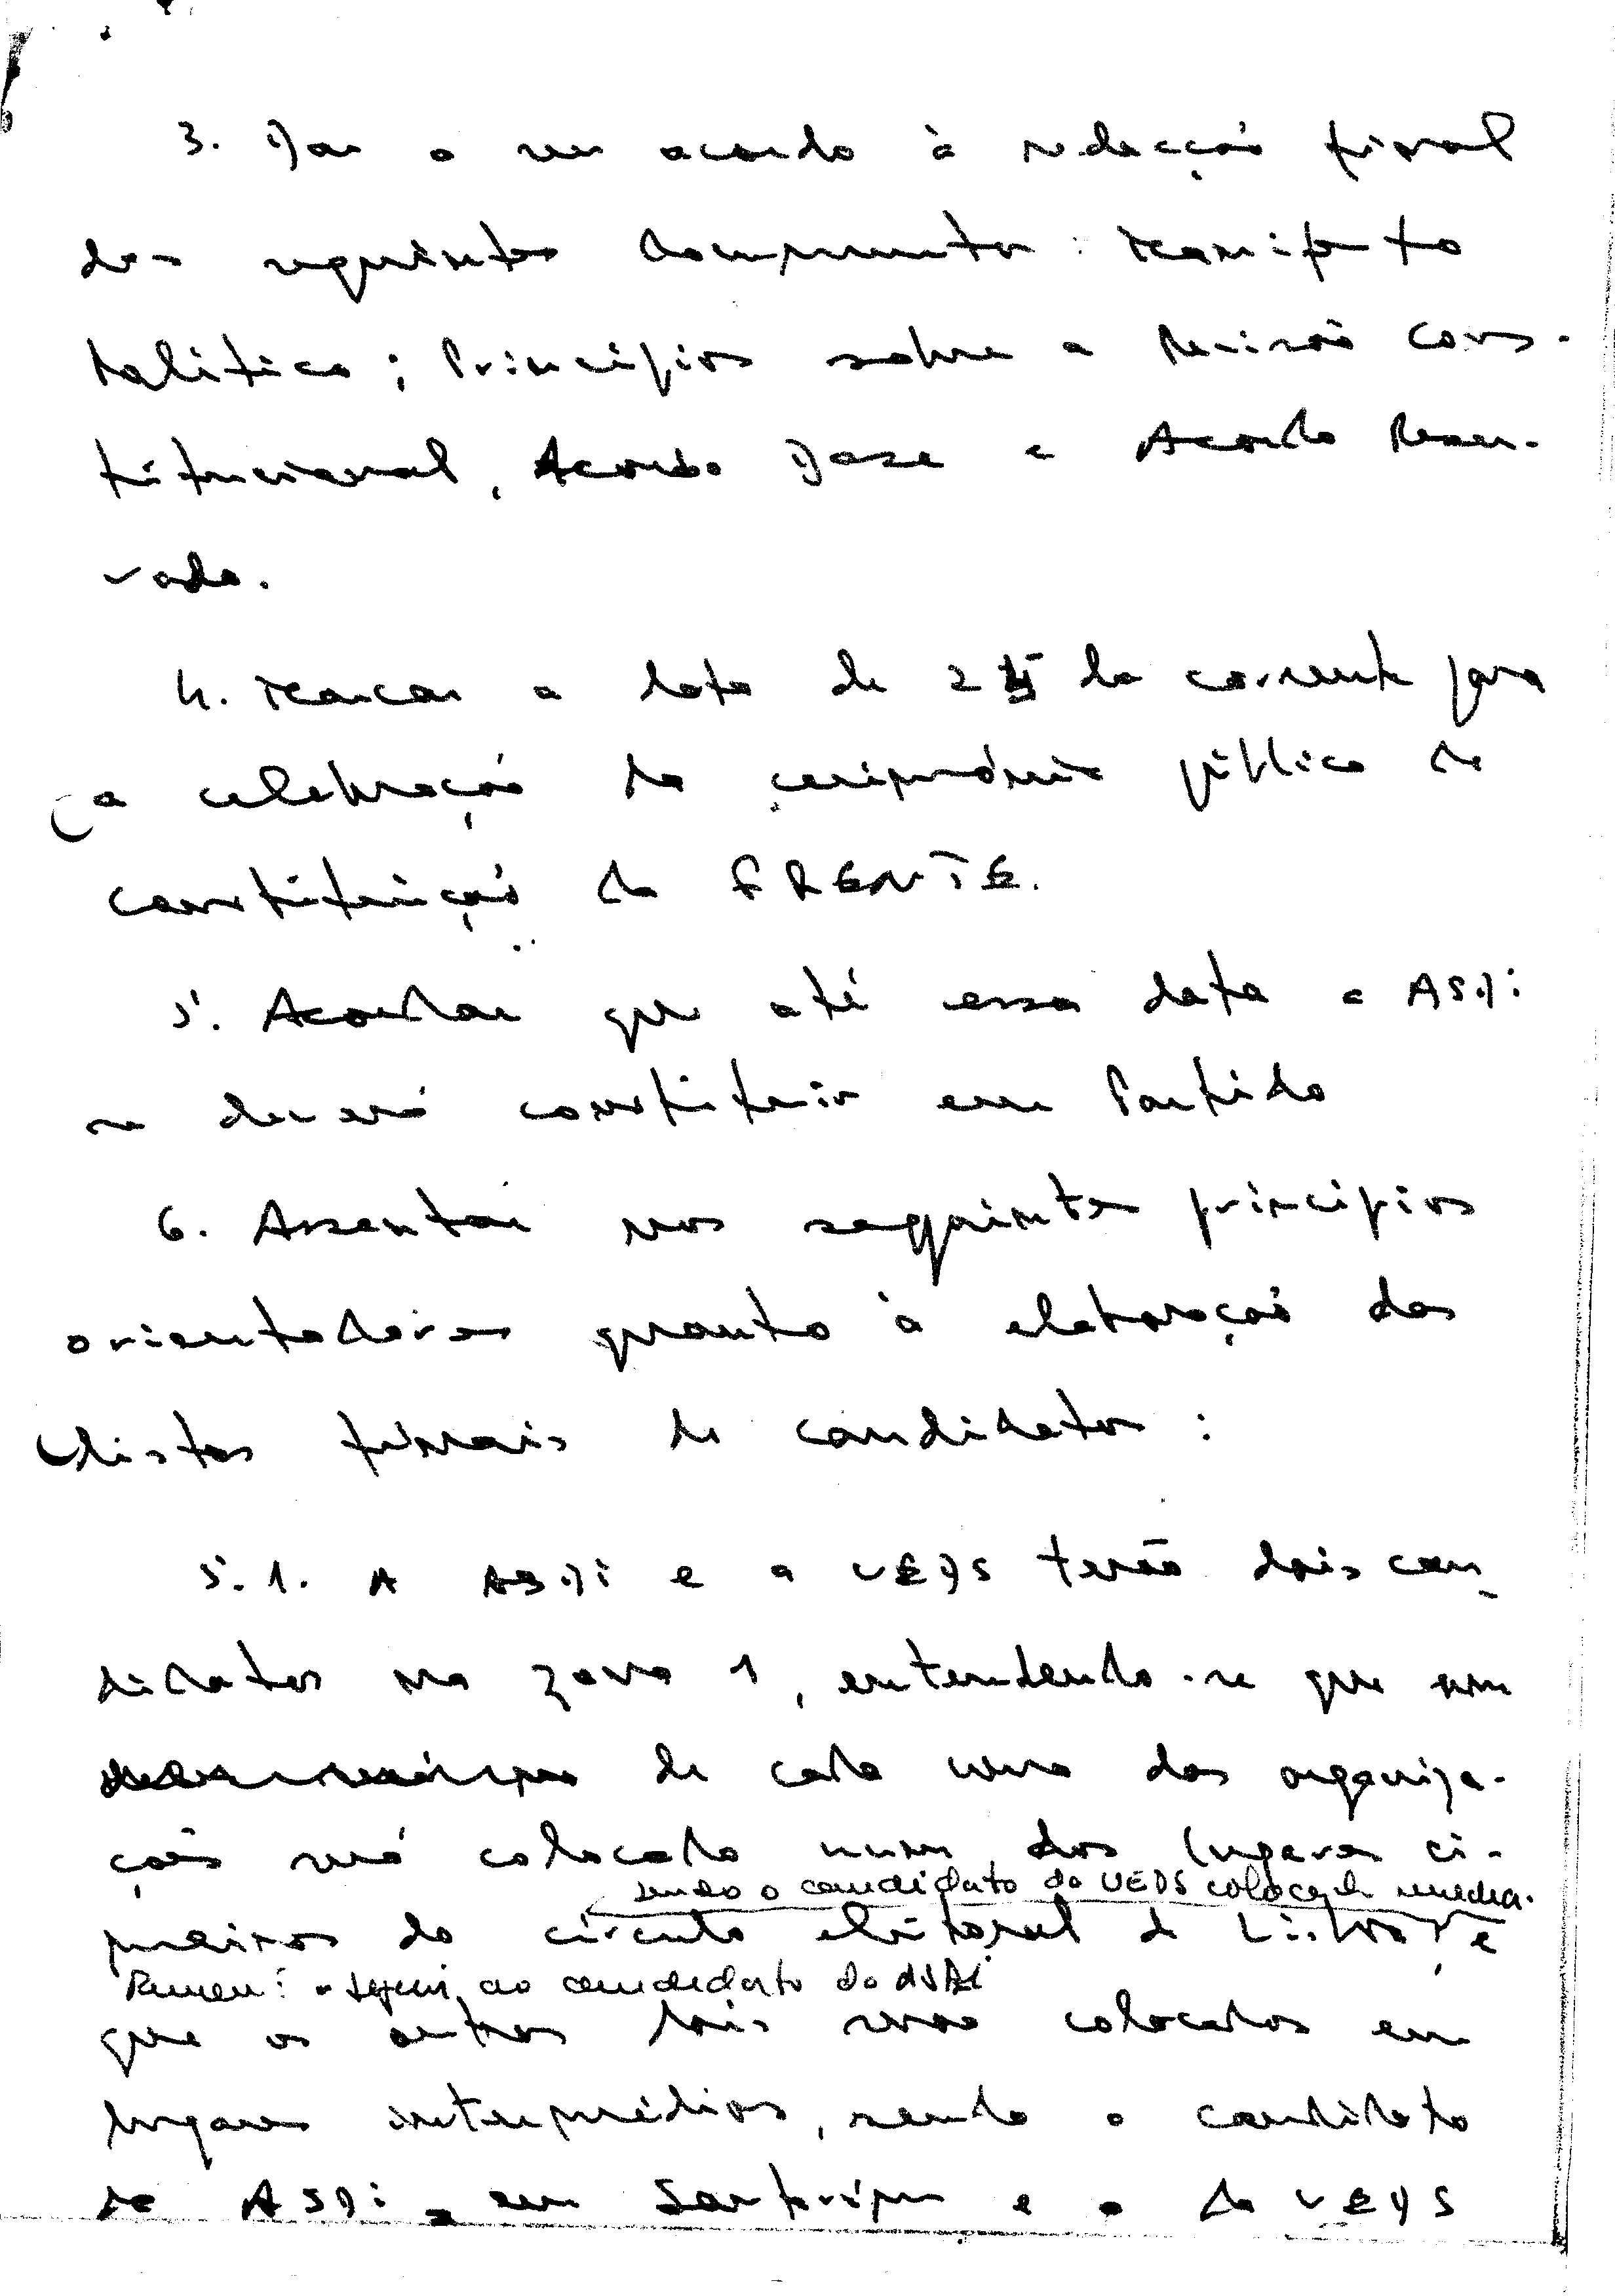 3. Dar o seu acordo à redacção final
dos seguintes documentos: Manifesto
Político; Princípios sobre a Revisão Cons-
titucional, Acordo Base e Acordo Reser-
vado.
4. Marcar a data de 2 do corrente para
a celebração da cerimónia pública de
constituição da FRENTE.
5. Acordar que até essa data a ASDI
se deverá constituir em Partido
6. Assentar nos seguintes princípios
orientadores quanto à elaboração das
listas finais de candidatos:
5.1. A ASDI e a UEDS terão dois can-
didatos na zona 1, entendendo-se que um
de cada uma das organiza-
ções será colocado num dos lugares ci-
sendo o candidato da UEDS colocado imedia-
meiros do círculo eleitoral de Lisboa, e
a seguir ao candidato da ASDI
que os outros dois serão colocados em
lugares intermédios, sendo o candidato
da ASDI em Santarém e o da UEDS